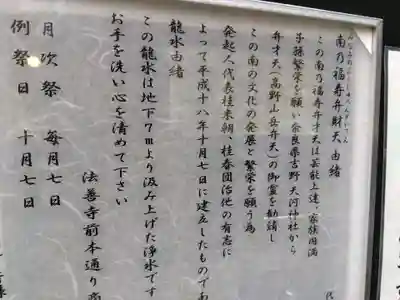 南乃福寿弁財天 由緒
この南乃福寿弁才天は芸能上達、家族円満
子孫繁栄を願い奈良県吉野天河神社から
弁才天(高野山岳弁天)の御霊を勧請し
この南の文化の発展と繁栄を願う為
発起人代表桂米朝、桂春団治他の有志に
よって平成十八年十月七日に建立したものであ
龍水由緒
この龍水は地下7mより汲み上げた浄水です
お手を洗い心を清めて下さい
法善寺前本通り商
月次祭 毎月七日
例祭日 十月七日